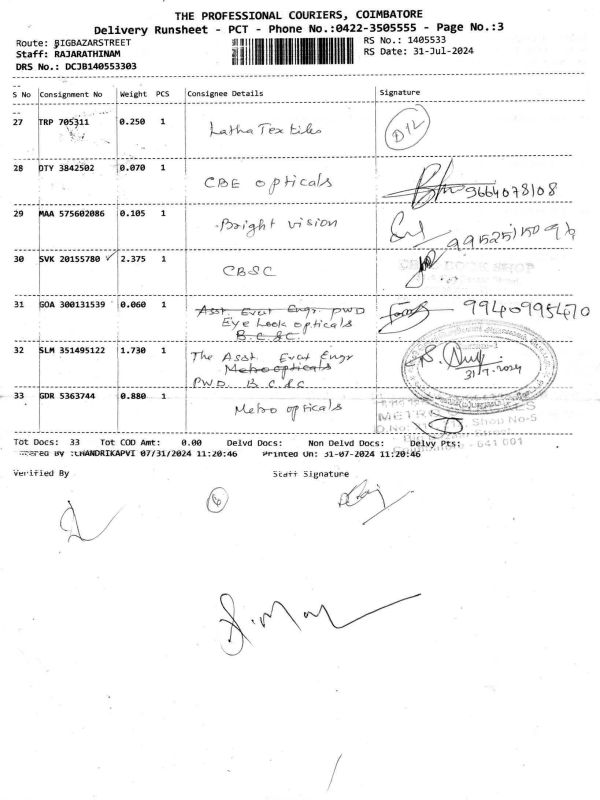 THE PROFESSIONAL COURIERS, COIMBATORE
Delivery Runsheet - PCT - Phone No.:0422-3505555 - Page No.:3
Route: BIGBAZARSTREET
RS No.: 1405533
Staff: RAJARATHINAM
RS Date: 31-Jul-2024
DRS No.: DCJB140553303
S No Consignment No Weight PCS Consignee Details Signature
27 TRP 705311 0.250 1 Latha Textiles
28 DTY 3842502 0.070 1 CBE opticals 9664078108
29 MAA 575602086 0.105 1 Bright vision
30 SVK 20155780 2.375 1 CBSC
BOOK SHOP
31 GOA 300131539 0.060 1 Asst Evat Engr PWD 9940995470
Eye Look opticals
B.C.&C
32 SLM 351495122 1.730 1 The Asst. Evat Engr
Metro opticals
PWD. B.C.&C
31.7.2024
33 GDR 5363744 0.880 1 Metro opticals
Shop No-5
641 001
Tot Docs: 33 Tot COD Amt: 0.00 Delvd Docs: Non Delvd Docs: Delvy Pts:
:CHANDRIKAPVI 07/31/2024 11:20:46 Printed On: 31-07-2024 11:20:46
Verified By Staff Signature
6